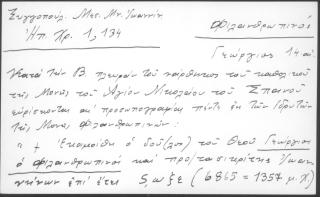 Ξυγγοπούλ. Μεσ. Μν. Ἰωαννίν.
Ἠπ. Χρ. 1, 134
Φιλανθρωπινός
Γεώργιος 14 αἰ.
Κατὰ τὴν Β. πλευρὰν τοῦ νάρθηκος τοῦ καθολικοῦ
τῆς Μονῆς τοῦ Ἁγίου Νικολάου τοῦ Σπανοῦ
εὑρίσκονται αἱ προσωπογραφίαι πέντε ἐκ τῶν Ἱδρυτῶν
τῆς Μονῆς Φιλανθρωπινῶν:
" + Ἐκοιμήθη ὁ δοῦ(λος) τοῦ Θεοῦ Γεώργιος
ὁ Φιλανθρωπινός καὶ πρω(τ)ασικρίτης Ἰωαν
νίνων ἐπὶ ἔτει ϛωξε (6865 = 1357 μ.Χ)